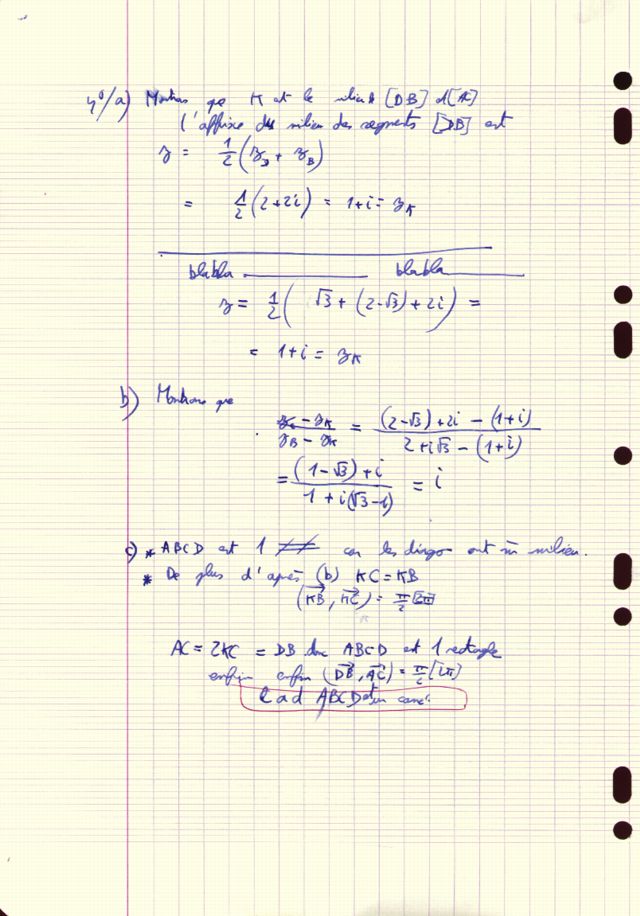 4°/a) Montrons que K est le milieu de [DB] et [AC]
L'affixe du milieu des segments [DB] est
z = 1/2 (z_D + z_B)
= 1/2 (2+2i) = 1+i = z_K
blabla ______ blabla ______
z = 1/2 ( √3 + (2-√3) + 2i ) =
= 1+i = z_K
b) Montrons que
(z_C - z_K)/(z_B - z_K) = ((2-√3)+2i - (1+i))/(2+i√3 - (1+i))
= ((1-√3)+i)/(1+i(√3-1)) = i
c) * ABCD est 1 // car les diago ont m̂ milieu.
* De plus d'après (b) KC = KB
(KB, KC) = π/2 [2π]
AC = 2KC = DB donc ABCD est 1 rectangle
enfin enfin (DB, AC) = π/2 [2π]
Cad ABCD est un carré.